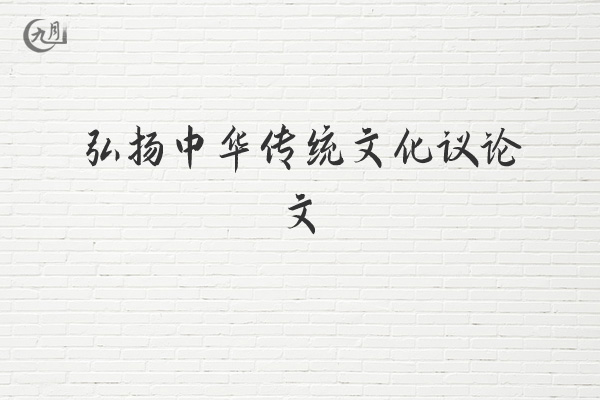 九月
弘扬中华传统文化议论
文